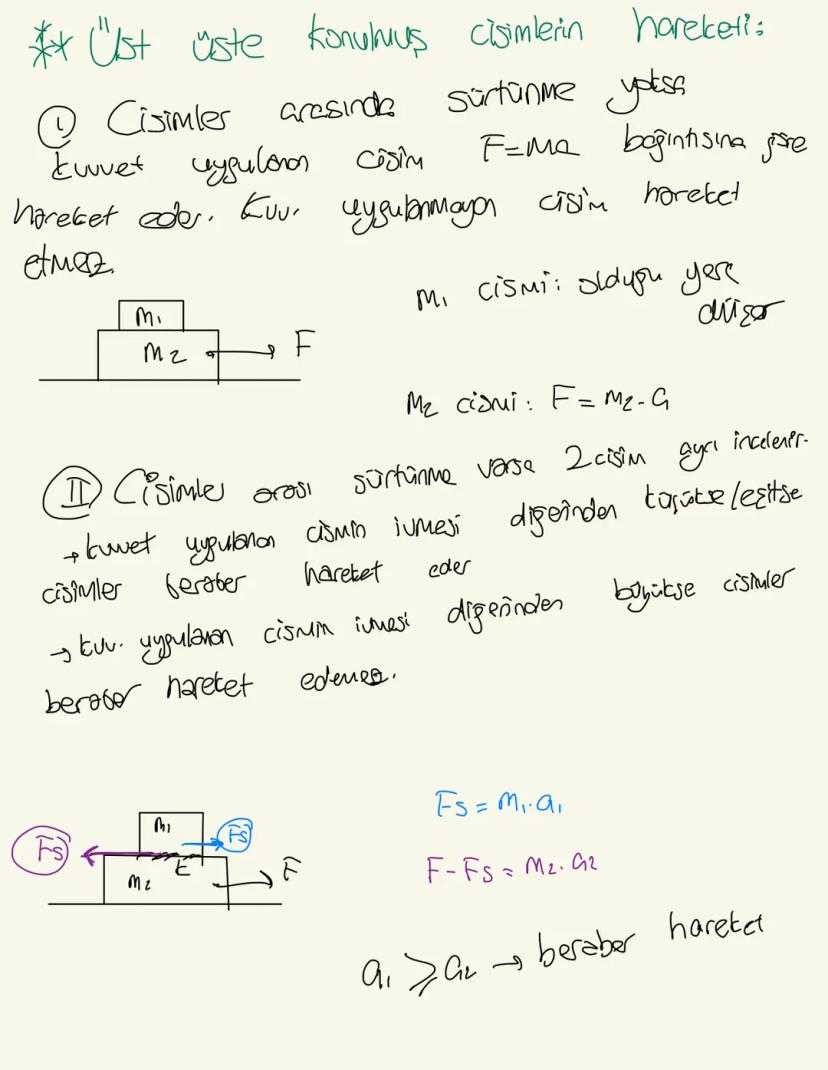 ** Üst üste konulmuş cisimlerin hareketi:
① Cisimler arasında sürtünme yoksa
kuvvet uygulanan cisim F=ma bağıntısına göre
hareket eder. Kuv. uygulanmayan cisim hareket
etmez.
m₁ cismi: olduğu yere
düşer
m₁
m₂ F
m₂ cismi: F=m₂.a
Ⅱ Cisimler arası sürtünme varsa 2 cisim ayrı incelenir.
→ kuvvet uygulanan cismin ivmesi diğerinden küçükse/eşitse
cisimler beraber hareket eder
→ kuv. uygulanan cismin ivmesi diğerinden büyükse cisimler
beraber hareket edemez.
Fs = m₁.a₁
m₁ Fs
Fs
m₂ F
F-Fs = m₂.a₂
a₁ ⩾ a₂ → beraber hareket